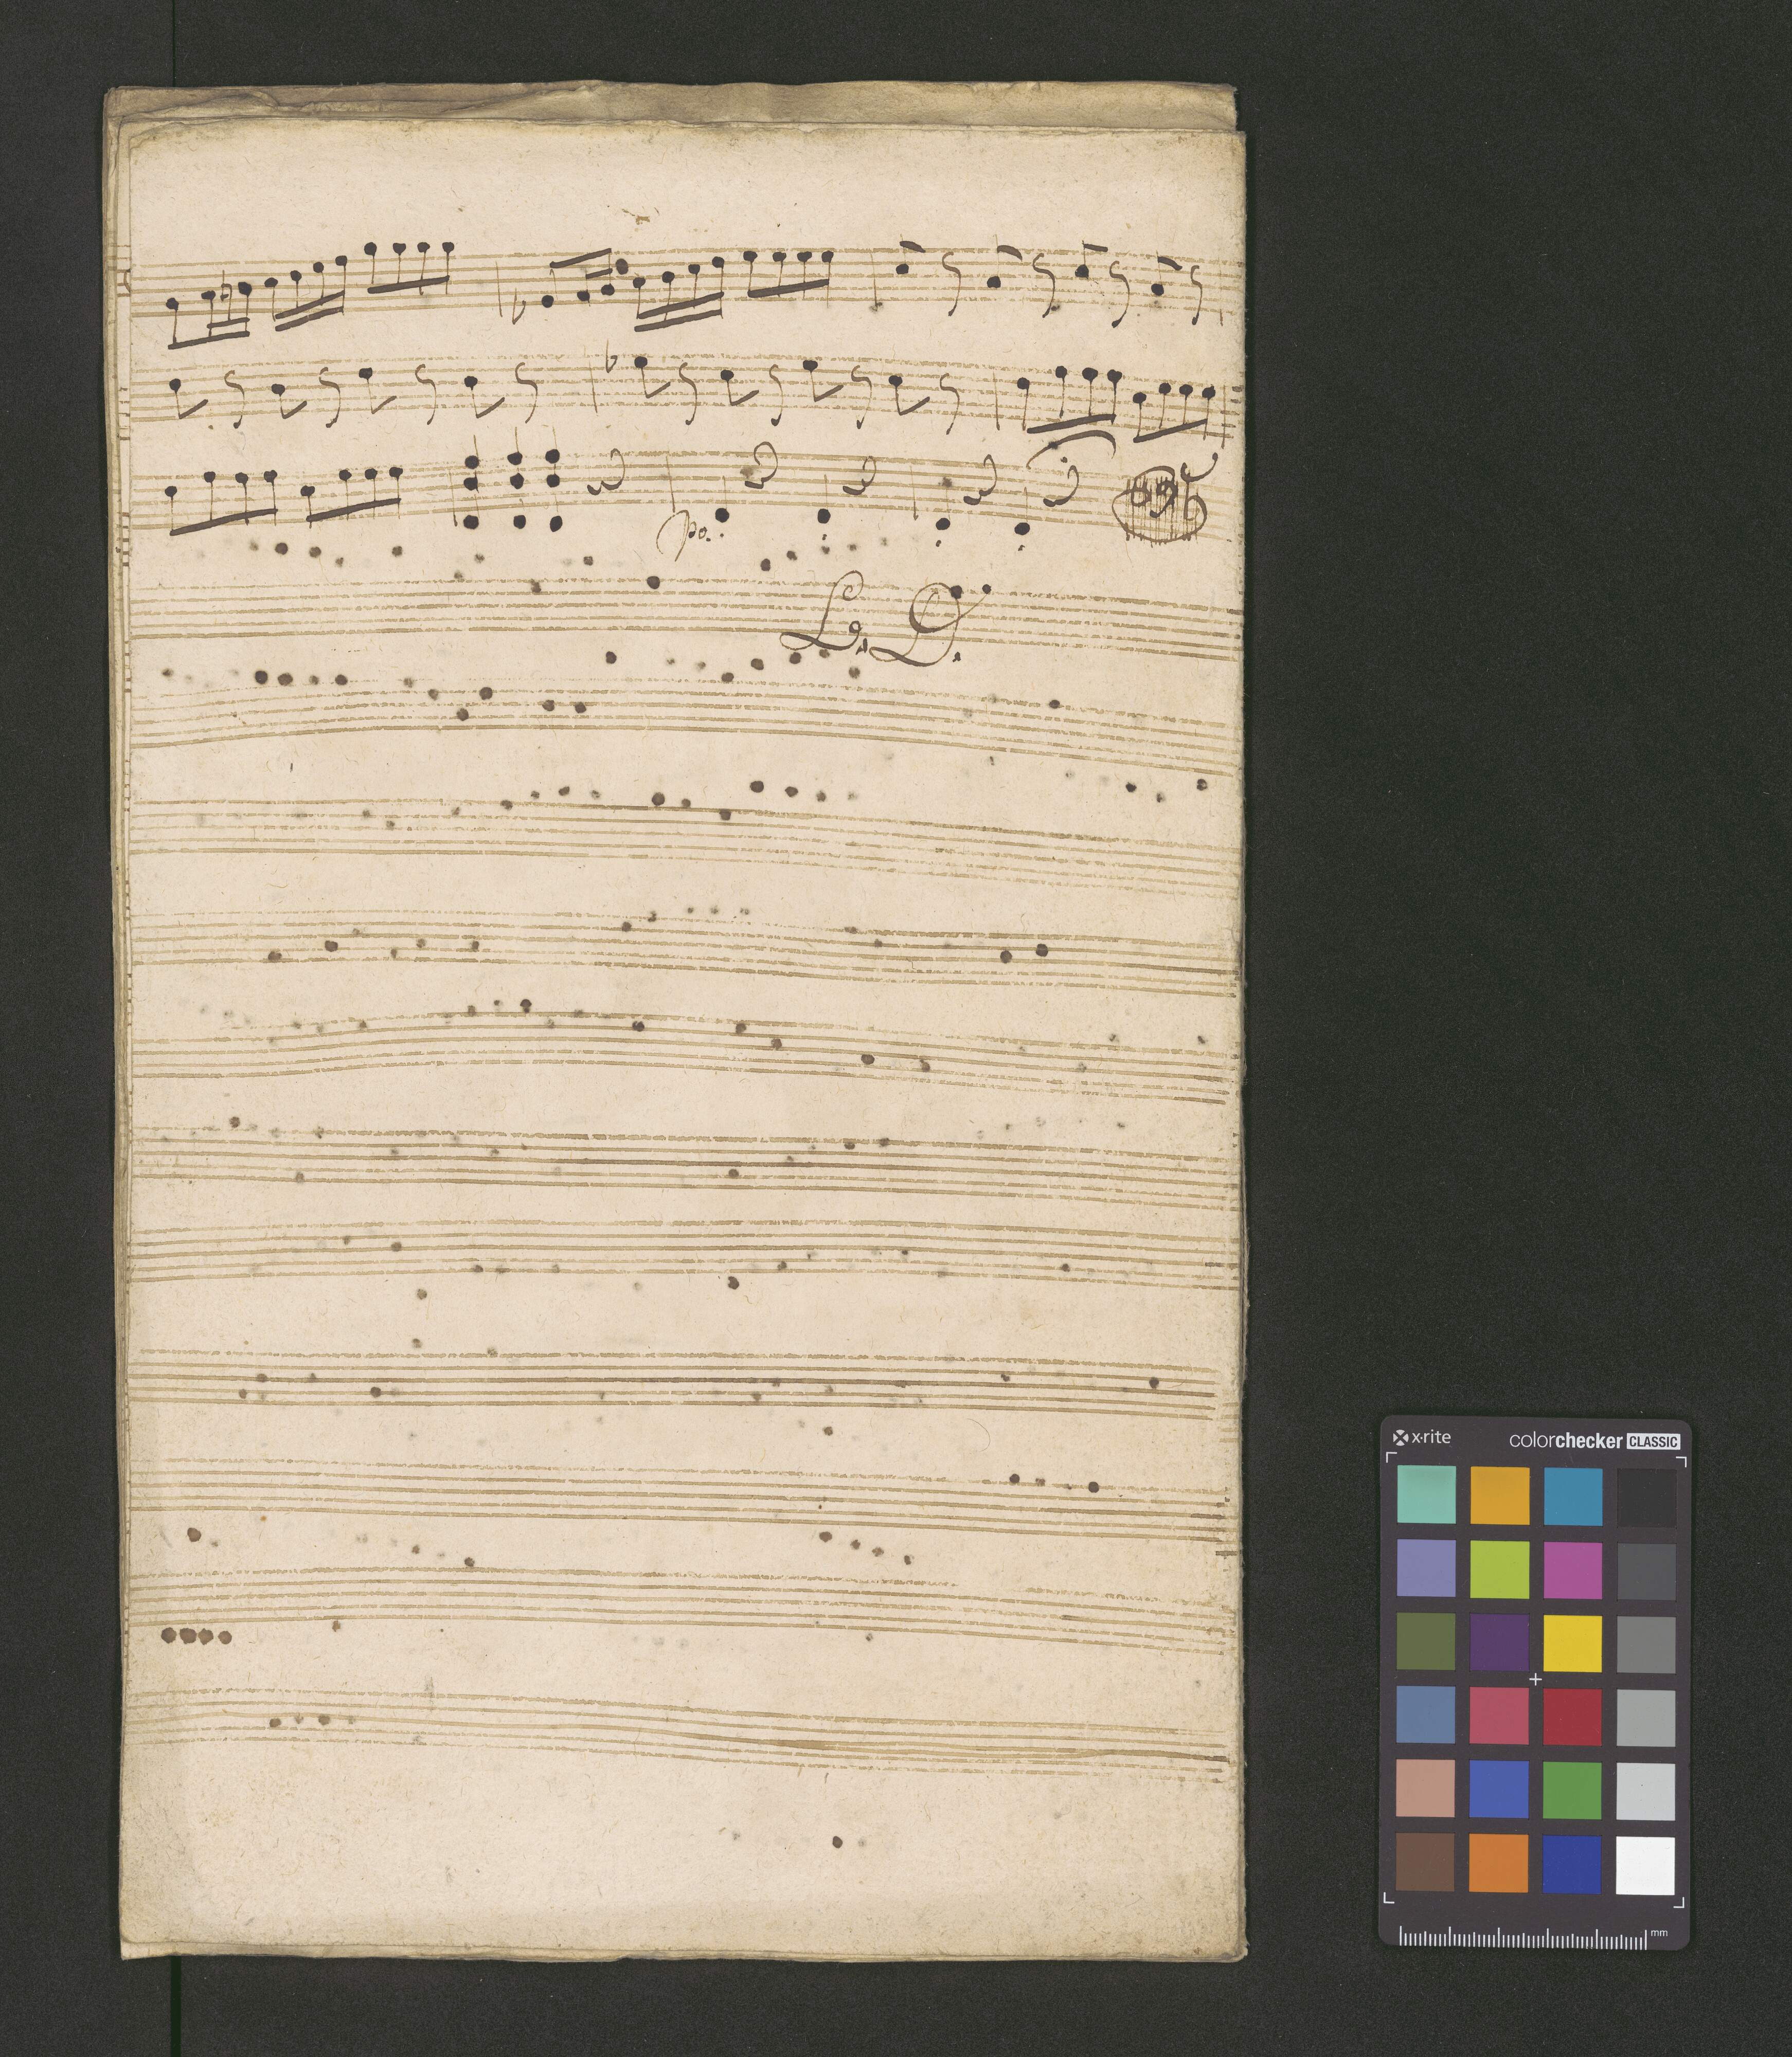 po.
L. D.
x·rite
colorchecker CLASSIC
mm